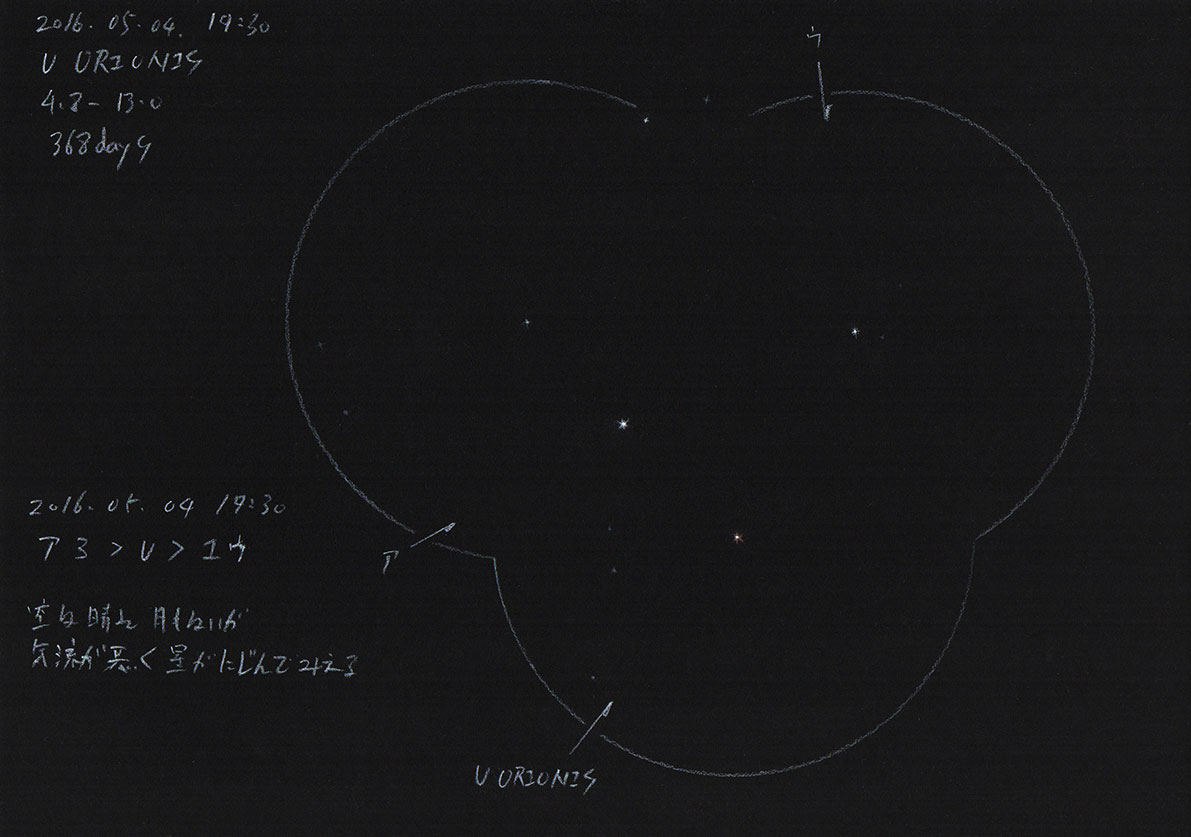 2016. 05. 04. 19:30
U ORIONIS
4.8 - 13.0
368 days
ウ
2016. 05. 04 19:30
ア 3 > U > 1 ウ
ア
空は晴れ 月もないが
気流が悪く 星がにじんでみえる
U ORIONIS